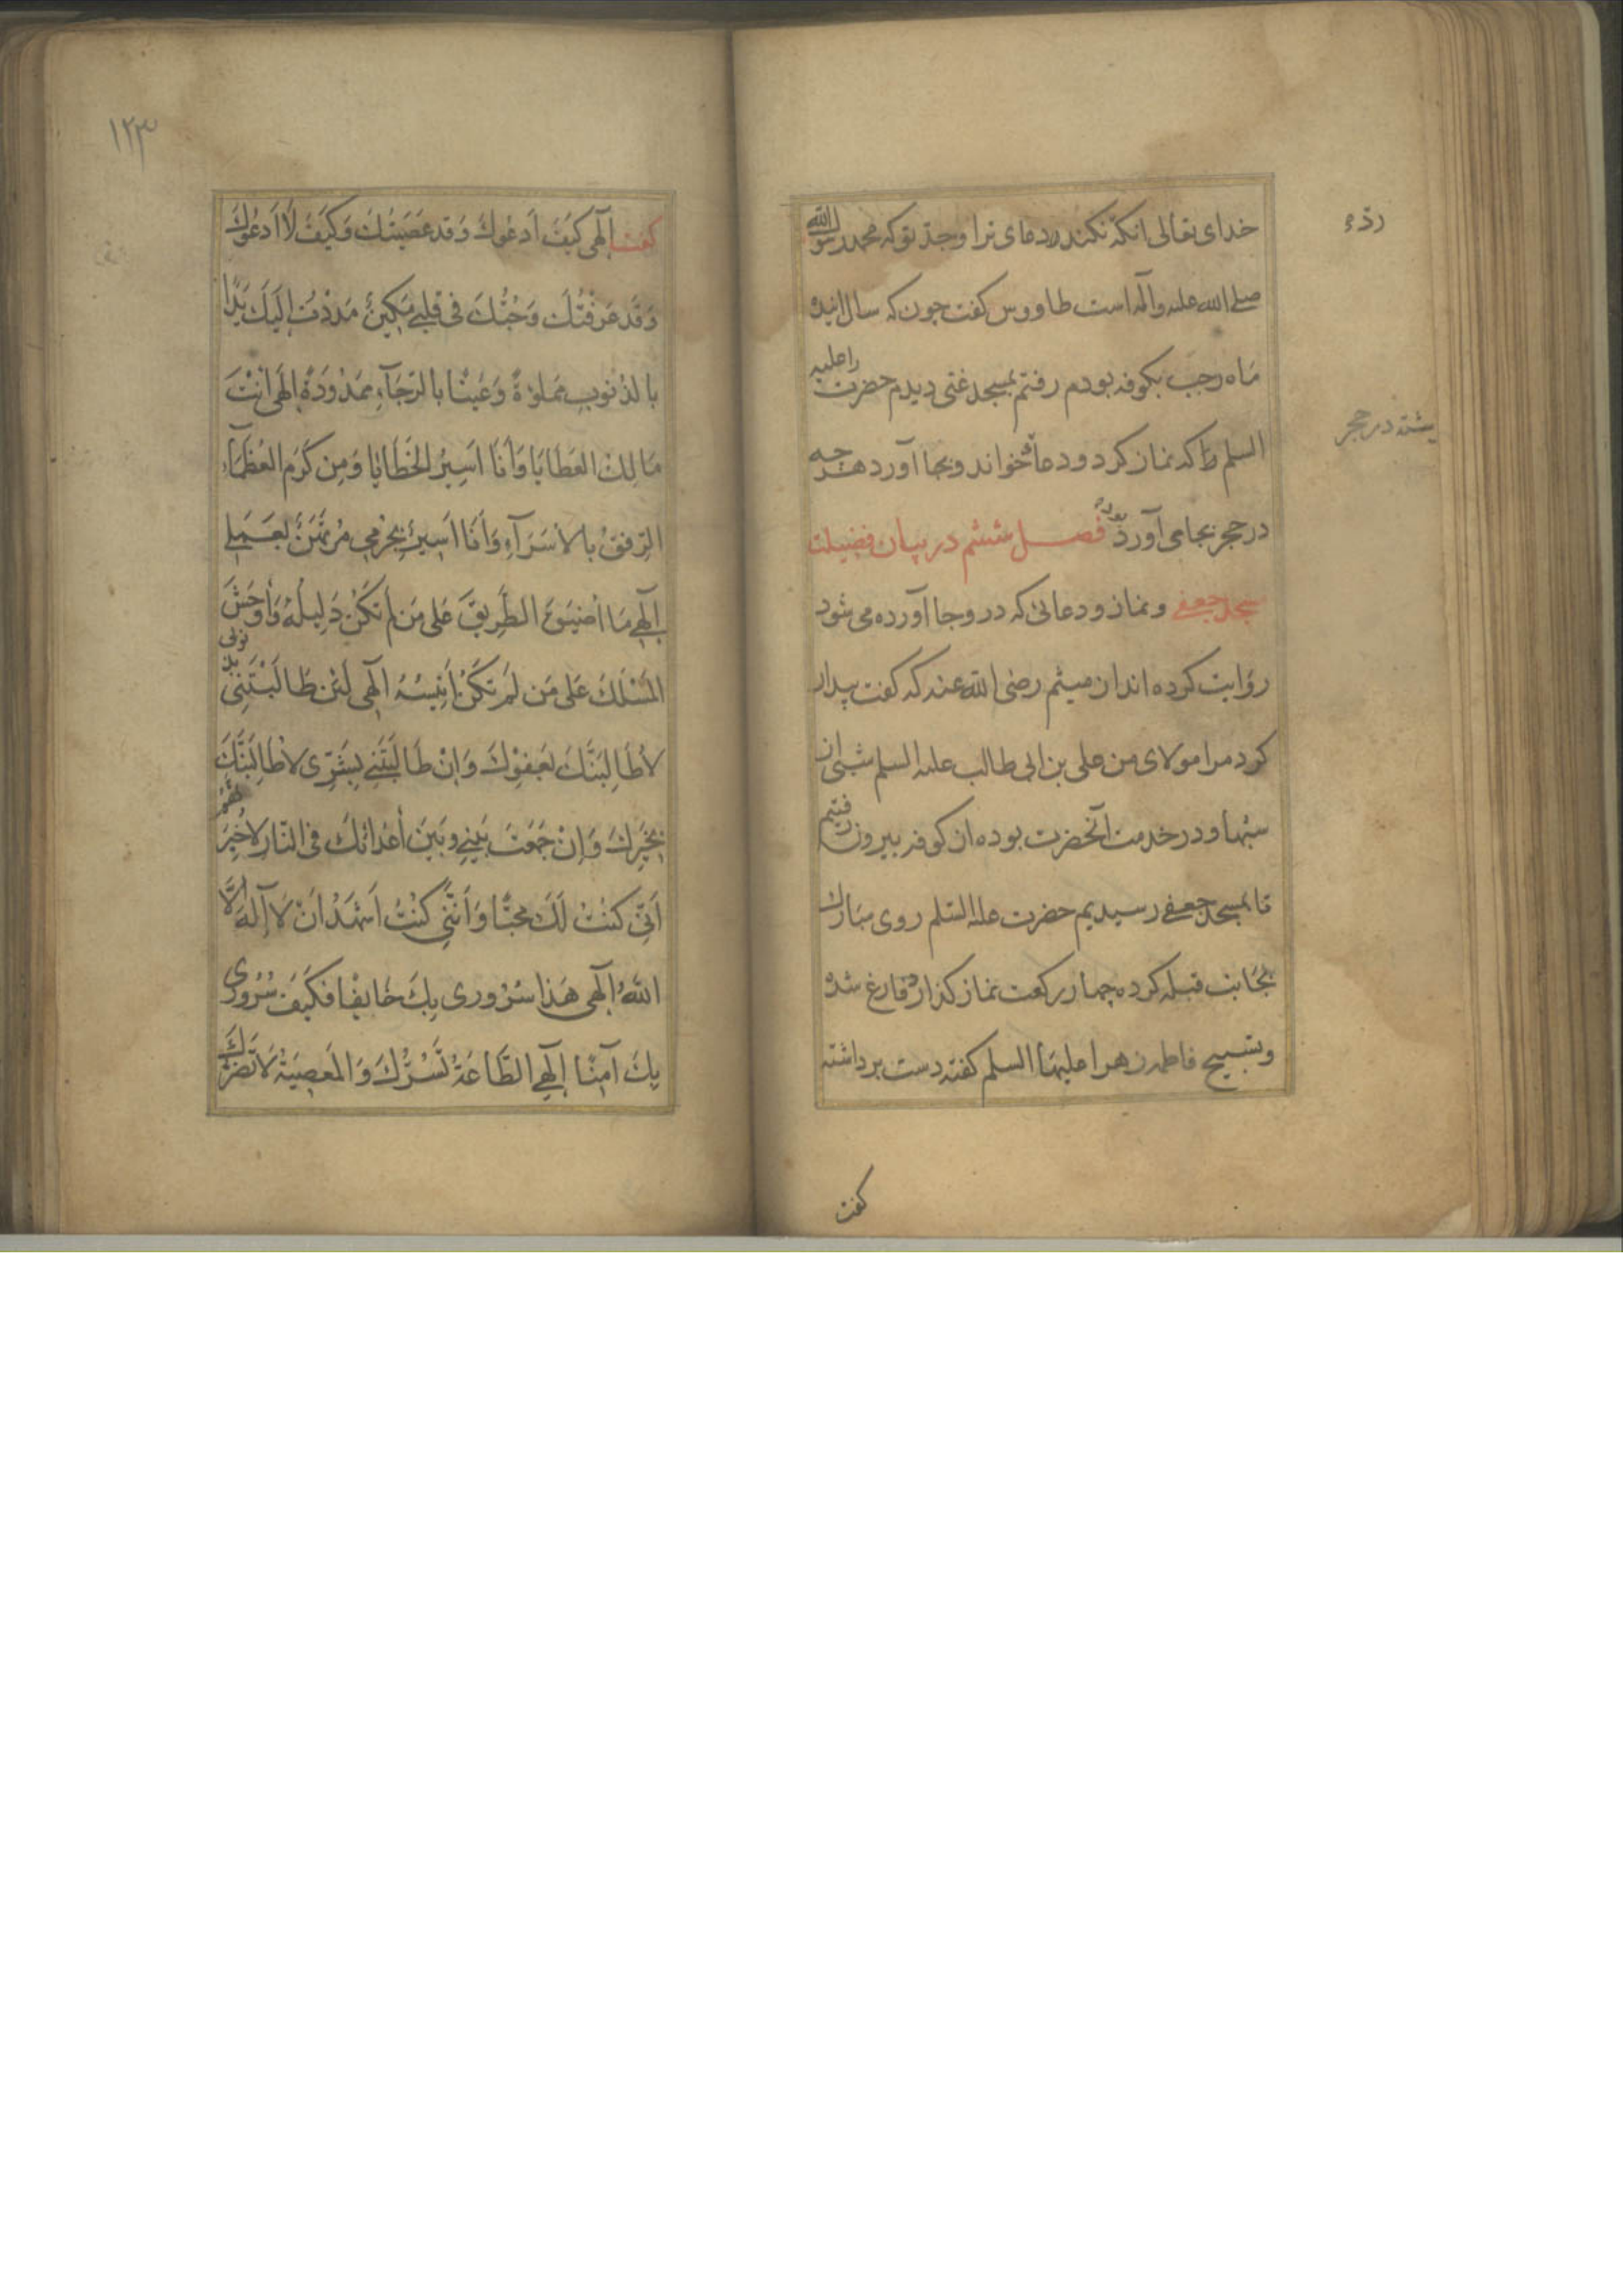 خدای تعالی انکه نکند رد دعای ترا و جد تو که محمد رسول الله
صلی الله علیه و آله است طاووس کفت جون که سال اینده
ماه رجب بکوفه بودم رفتم بمسجد غنی دیدم حضرت را علیه
السلم که نماز کرد و دعا خواند و بجا آورد هرجه
در حجر بجا می آورد فصل ششم در بیان فضیلت
مسجد جعفی و نماز و دعائی که در و بجا آورده می شود
روایت کرده اند از میثم رضی الله عنه که کفت بیدار
کرد مرا مولای من علی بن ابی طالب علیه السلم شبی از
شبها و در خدمت آنحضرت بوده از کوفه بیرون رفتیم
تا بمسجد جعفی رسیدیم حضرت علیه السلم روی مبارک
بجانب قبله کرده چهار رکعت نماز کذارد فارغ شده
و تسبیح فاطمه زهرا علیها السلم کفته دست برداشته
کفت
ردء
در حجر
١٢٣
کفت اِلٓهی کَیفَ اَدعُوكَ وَقَد عَصَیتُكَ وَکَیفَ لَا اَدعُوكَ
وَقَد عَرَفْتُكَ وَحُبُّكَ فی قَلبی مَکِینٌ مَدَدْتُ اِلَیكَ یَدًا
بالذُنوبِ مَملوّةً وَعَینًا بالرَجَآءِ مَمدُودَةً اِلٓهی اَنْتَ
مَالِكُ العَطَایَا وَأَنَا اَسِیرُ الخَطَایَا وَمِن کَرَمِ العُظَمَآءِ
الرِفقُ بالاُسَرَآءِ وَأَنَا اَسِیرٌ بِجُرمِی مُرتَهَنٌ بِعَمَلی
اِلٓهی مَا اَضیَقَ الطَرِیقَ عَلی مَن لَم تَکُن دَلِیلَهُ وَاَوحَشَ
المَسْلَكَ عَلی مَن لَم تَکُن اَنِیسَهُ اِلٓهی لَئِن طَالَبْتَنِی بِذُنُوبی
لاُطَالِبَنَّكَ بِعَفوِكَ وَاِنْ طَالَبْتَنی بِشَرِّی لاُطَالِبَنَّكَ
بِخَیرِكَ وَاِنْ جَمَعْتَ بَینی وبَینَ أَعْدَائِكَ فی النّارِ لاُخبِرَنَّهُم
اَنِّی کُنتُ لَكَ مُحِبًّا وَاَنَّنِی کُنْتُ اَشهَدُ اَنْ لَا اِلٓهَ اِلَّا
اللّٰهُ اِلٓهی هَذَا سُرُوری بِكَ خَایِفًا فَکَیفَ سُرُوری
بِكَ آمِنًا اِلٓهی الطَّاعَةُ تَسُرُّكَ وَالمَعصِیَةُ لَا تَضُرُّكَ